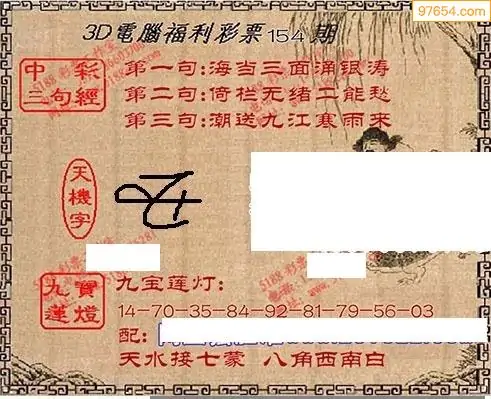 97654.com
3D電腦福利彩票154期
中彩
三句經
第一句:海当三面涌银涛
第二句:倚栏无绪二能愁
第三句:潮送九江寒雨来
天機字
九寶
蓮燈
九宝莲灯:
14-70-35-84-92-81-79-56-03
配:
天水接七蒙 八角西南白